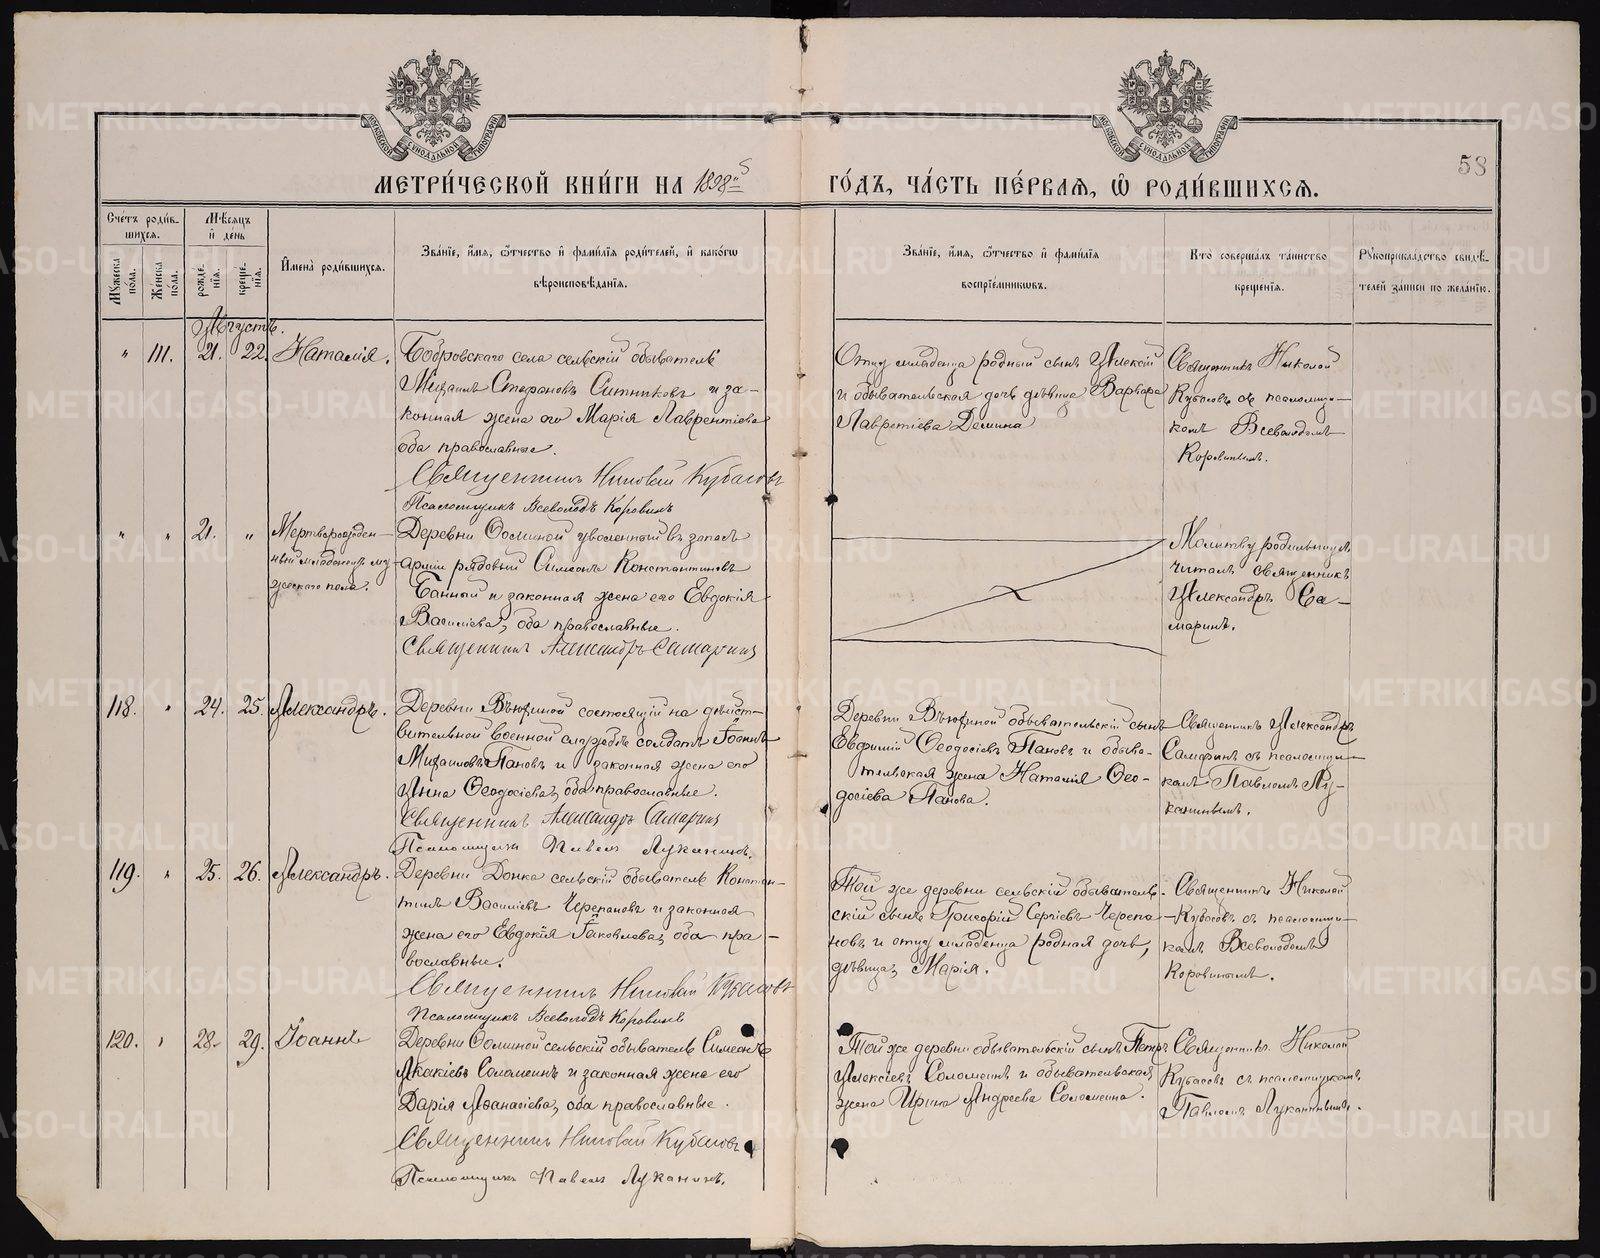 МЕТРИ́ЧЕСКОЙ КНИ́ГИ НА 1898й
ГО́ДЪ, ЧА́СТЬ ПЕ́РВАЯ, Ѡ҆ РОДИ́ВШИХСЯ.
58
Сче́тъ роди́в-
шихся.
Мꙋ́жеска по́ла.
Же́нска по́ла.
Мѣ́сяцъ
и҆ де́нь
рожде́нїя.
креще́нїя.
И҆мена̀ роди́вшихся.
Зва́нїе, и҆́мя, ѻ҆́тчество и҆ фами́лїя роди́телей, и҆ како́гѡ
вѣроисповѣ́данїя.
Зва́нїе, и҆́мя, ѻ҆́тчество и҆ фами́лїя
воспрїе́мникѡвъ.
Кто̀ соверша́лъ та́инство
креще́нїя.
Рꙋкоприкла́дство свидѣ́-
телей за́писи по жела́нїю.
Августъ.
" 111. 21. 22. Наталія.
Бобровскаго села сельскій обыватель
Михаилъ Стефановъ Ситниковъ и за-
конная жена его Марія Лаврентіева
оба православные.
Священникъ Николай Кубасовъ
Псаломщикъ Всеволодъ Коровинъ
Отцу младенца родный сынъ Алексій
и обывательская дочь дѣвица Варвара
Лаврентіева Демина
Священникъ Николай
Кубасовъ съ псаломщи-
комъ Всеволодомъ
Коровинымъ.
" " 21. "
Мертворожден-
ный младенецъ му-
жескаго пола.
Деревни Ѳоминой уволенный въ запасъ
арміи рядовый Симеонъ Константиновъ
Банный и законная жена его Евдокія
Василіева, оба православные.
Священникъ Александръ Самаринъ
Молитву родильницѣ
читалъ священникъ
Александръ Са-
маринъ.
118. " 24. 25. Александръ.
Деревни Вьюхиной состоящій на дѣйст-
вительной военной службѣ солдатъ Іоаннъ
Михаиловъ Пановъ и законная жена его
Анна Ѳеодосіева, оба православные.
Священникъ Александръ Самаринъ
Псаломщикъ Павелъ Луканинъ.
Деревни Вьюхиной обывательскій сынъ
Евфимій Ѳеодосіевъ Пановъ и обыва-
тельская жена Наталія Ѳео-
досіева Панова.
Священникъ Александръ
съ псаломщи-
комъ Павломъ Лу-
канинымъ.
119. " 25. 26. Александръ.
Деревни Донка сельскій обыватель Констан-
тинъ Василіевъ Черепановъ и законная
жена его Евдокія Іаковлева, оба пра-
вославные.
Священникъ Николай Кубасовъ
Псаломщикъ Всеволодъ Коровинъ
Той же деревни сельскій обыватель-
скій сынъ Григорій Сергіевъ Черепа-
новъ и отцу младенца родная дочь,
дѣвица, Марія.
Священникъ Николай
Кубасовъ съ псаломщи-
комъ Всеволодомъ
Коровинымъ.
120. " 28. 29. Іоаннъ
Деревни Ѳоминой сельскій обыватель Симеонъ
Акакіевъ Соломеинъ и законная жена его
Дарія Аѳанасіева, оба православные.
Священникъ Николай Кубасовъ
Псаломщикъ Павелъ Луканинъ.
Той же деревни обывательскій сынъ Петръ
Алексіевъ Соломеинъ и обывательская
жена Ирина Андреева Соломеина.
Священникъ Николай
Кубасовъ съ псаломщикомъ
Павломъ Луканинымъ.